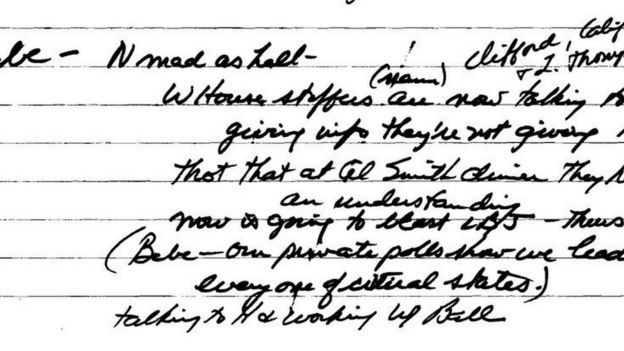 Clifford, Calif
ebe – N mad as hell –
& L. Thomp
W House staffers are now talking
giving info they're not giving
thot that at Al Smith dinner they
an understanding
now is going to blast LBJ – thurs
(Bebe – our private polls show we lead
every one of critical states.)
talking to H & working w/ Bell